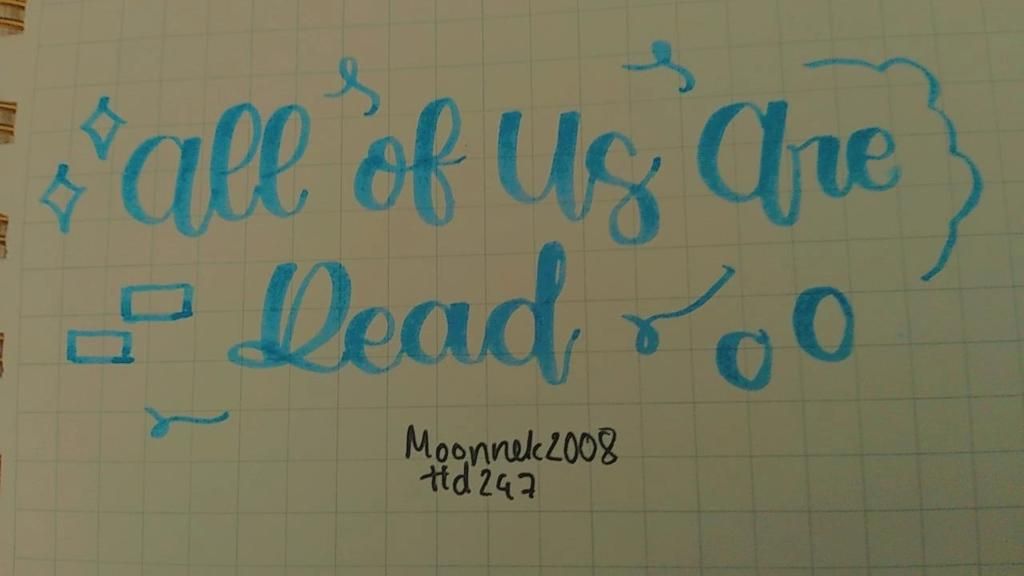 all of us are
Dead
Moonnek2008
Hd247